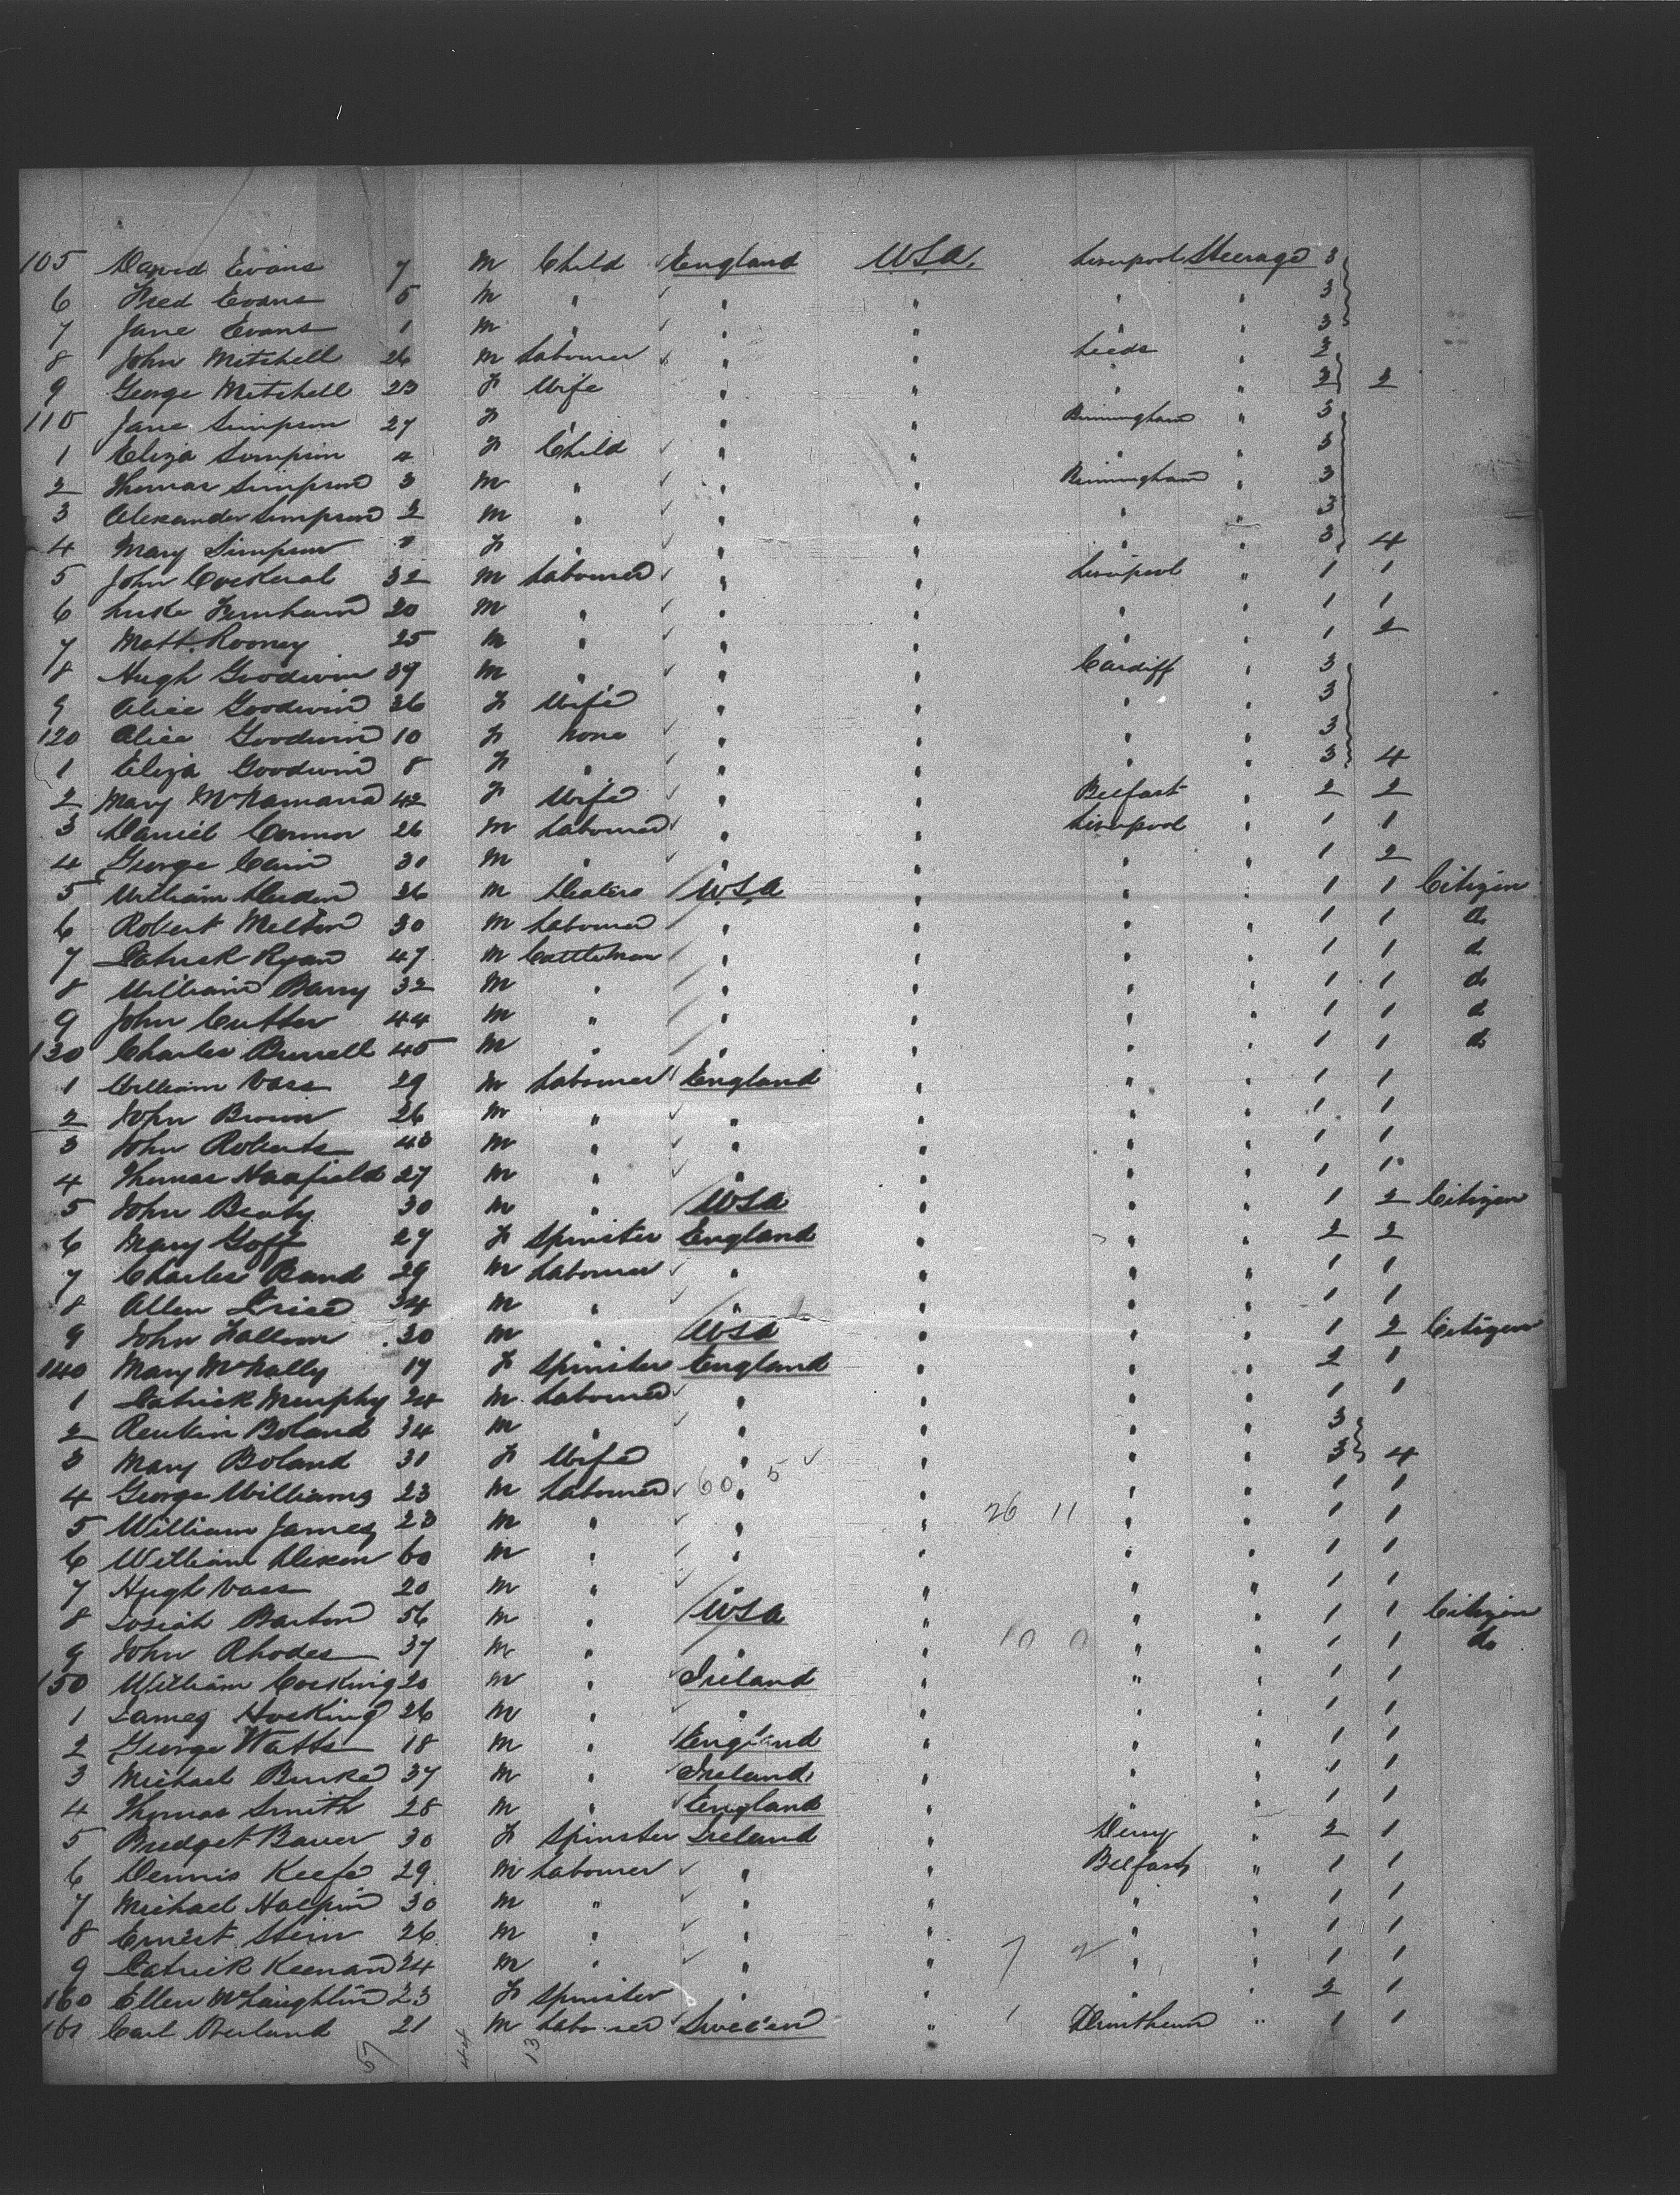 105 David Evans 7 M Child England U.S.A. Liverpool Steerage 3
6 Fred Evans 5 M " " " " " 3
7 Jane Evans 1 M " " " " " 3
8 John Mitchell 26 M Labourer " " Leeds " 3
9 George Mitchell 23 F Wife " " " " 3 2
110 Jane Simpson 27 F " " Birmingham " 3
1 Eliza Simpson 4 F Child " " " 3
2 Thomas Simpson 3 M " " " Birmingham " 3
3 Alexander Simpson 2 M " " " " " 3
4 Mary Simpson F " " " " " 3 4
5 John Cockeral 32 M Labourer " " Liverpool " 1 1
6 Luke 20 M " " " " " 1 1
7 Matt. Rooney 25 M " " " " " 1 2
8 Hugh Goodwin 39 M " " " Cardiff " 3
9 Alice Goodwin 36 F Wife " " " " 3
120 Alice Goodwin 10 F None " " " " 3
1 Eliza Goodwin 8 F " " " " " 3 4
2 Mary McNamara 42 F Wife " " Belfast " 2 2
3 Daniel Connor 26 M Labourer " " Liverpool " 1 1
4 George Cain 30 M " " " " " 1 2
5 William 36 M USA " " " 1 1 Citizen
6 Robert Melton 30 M Labourer " " " " 1 1 do
7 Patrick Ryan 47 M Cattleman " " " " 1 1 do
8 William Barry 32 M " " " " " 1 1 do
9 John Cutter 44 M " " " " " 1 1 do
130 Charles Burrell 45 M " " " " " 1 1 do
1 William Vass 29 M Labourer England " " " 1 1
2 John Brown 26 M " " " " " 1 1
3 John Roberts 43 M " " " " " 1 1
4 Thomas Haafield 27 M " " " " " 1 1
5 John Beaty 30 M " USA " " " 1 2 Citizen
6 Mary Goff 27 F Spinster England " " " 2 2
7 Charles Band 29 M Labourer " " " " 1 1
8 Allen Price 34 M " " " " " 1 1
9 John Fallon 30 M " USA " " " 1 2 Citizen
140 Mary McNally 19 F Spinster England " " " 2 1
1 Patrick Murphy 24 M Labourer " " " " 1 1
2 Boland 34 M " " " " " 3
3 Mary Boland 31 F Wife " " " " 3 4
4 George Williams 23 M Labourer 60 5 " " " " 1 1
5 William James 23 M " " " 26 11 " " 1 1
6 William Dixon 60 M " " " " " 1 1
7 Hugh Vass 20 M " " " " " 1 1
8 Josiah Barton 56 M " USA " " " 1 1 Citizen
9 John Rhodes 37 M " " " 10 0 " " 1 1 do
150 William Cocking 20 M " Ireland " " " 1 1
1 James Hocking 26 M " " " " " 1 1
2 George Watts 18 M " England " " " 1 1
3 Michael Burke 37 M " Ireland " " " 1 1
4 Thomas Smith 28 M " England " " " 1 1
5 Bridget Bauer 30 F Spinster Ireland " Derry " 2 1
6 Dennis Keefe 29 M Labourer " " Belfast " 1 1
7 Michael Halpin 30 M " " " " " 1 1
8 Ernest Stein 26 M " " " " " 1 1
9 Patrick Keenan 24 M " " " 7 2 " " 1 1
160 Ellen McLaughlin 23 F Spinster " " " " 2 1
161 Carl Overland 21 M Labourer Sweden " " 1 1
57 44 13